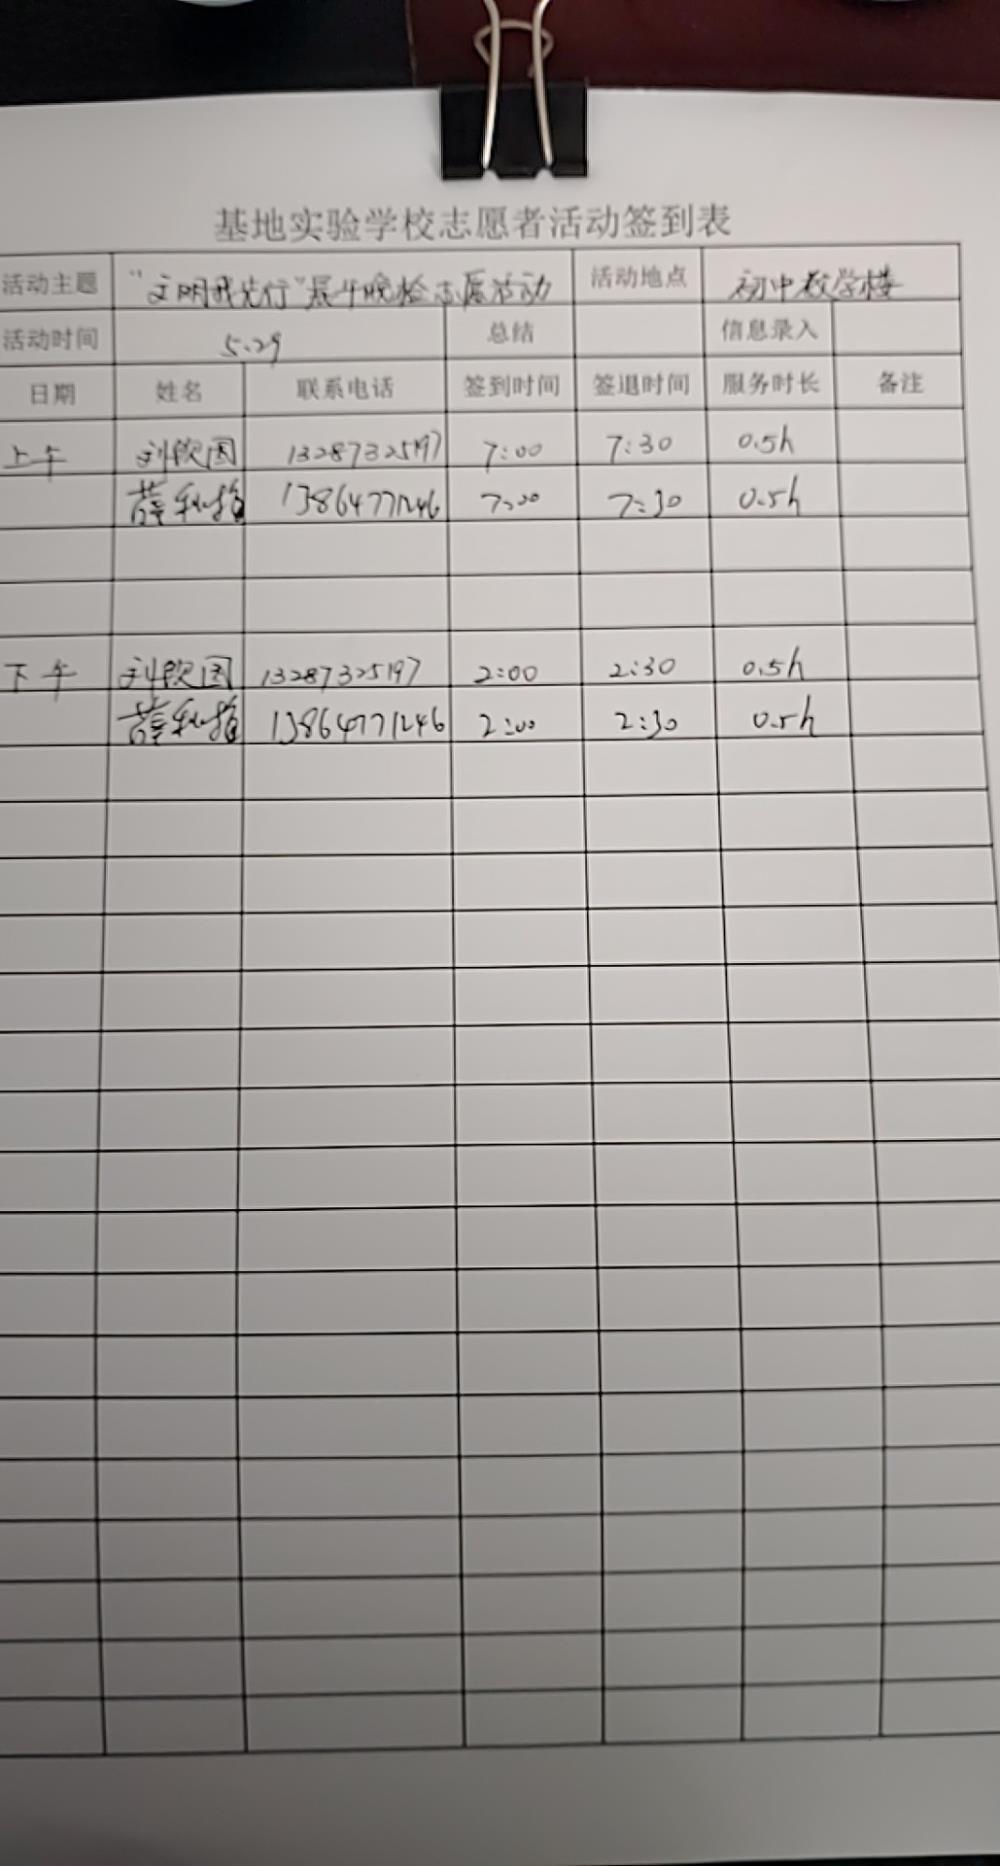 基地实验学校志愿者活动签到表
活动主题 "文明我先行"晨午晚检志愿活动 活动地点 初中教学楼
活动时间 5.29 总结 信息录入
日期 姓名 联系电话 签到时间 签退时间 服务时长 备注
上午 刘钦国 13287325197 7:00 7:30 0.5h
薛 13864771246 7:00 7:30 0.5h
下午 刘钦国 13287325197 2:00 2:30 0.5h
薛 13864771246 2:00 2:30 0.5h